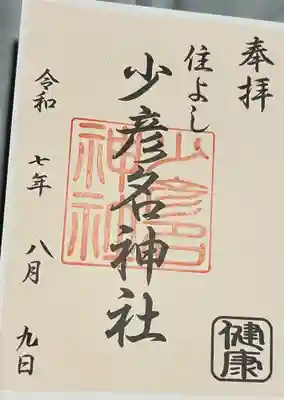 奉拝
住よし
少彦名神社
少彦名神社
令和七年八月九日
健康